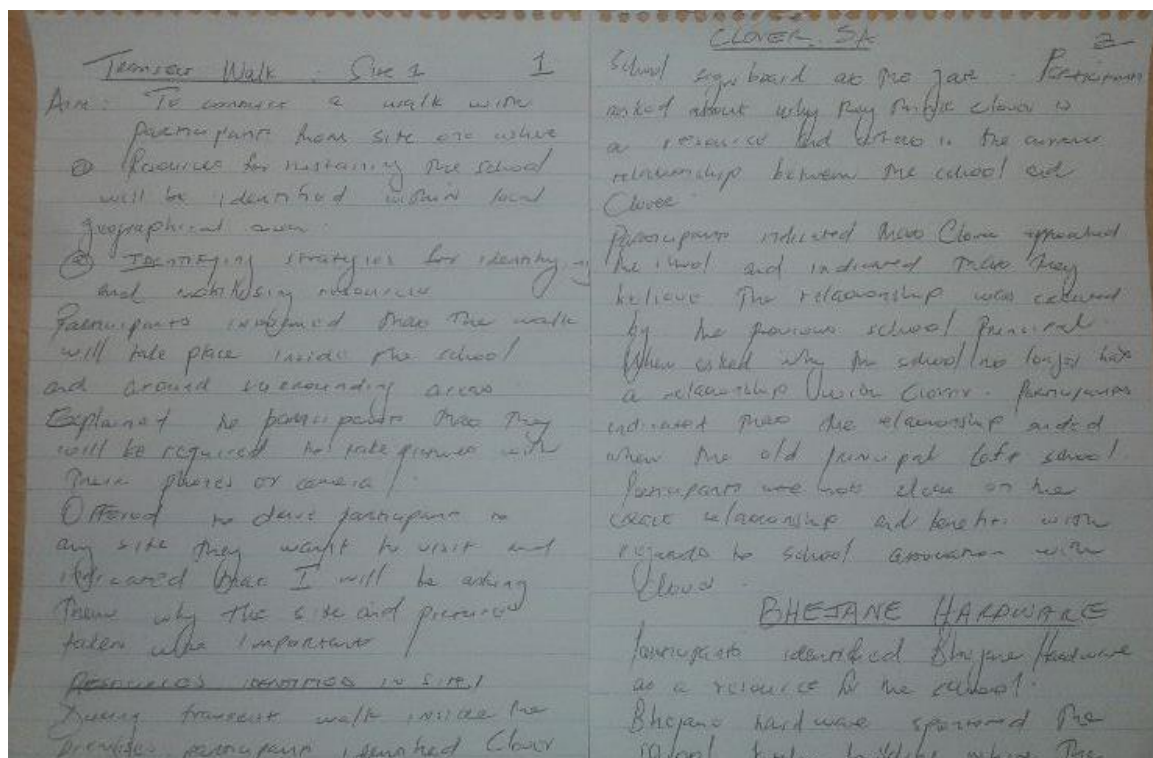 Transect Walk : Site 1 1
Aim: To conduct a walk with
participants from site one where
Resources for sustaining the school
will be identified within local
geographical area.
Identifying strategies for identifying
and mobilising resources
Participants informed that the walk
will take place inside the school
and around surrounding areas
Explained to participants that they
will be required to take pictures with
Their phones or camera.
Offered to drive participants to
any site they want to visit and
indicated that I will be asking
Them why the site and pictures
taken are important
Resources identified in site 1
During transect walk inside the
premises participants identified Clover
CLOVER SA 2
School sign board at the gate. Participants
asked about why they think Clover is
a resource and what is the current
relationship between the school and
Clover.
Participants indicated that Clover approached
the school and indicated that they
believe the relationship was created
by the previous school Principal.
When asked why the school no longer has
a relationship with Clover. Participants
indicated that the relationship ended
when the old principal left school.
Participants were not clear on the
exact relationship and benefits with
regards to school association with
Clover.
BHEJANE HARDWARE
Participants identified Bhejane Hardware
as a resource for the school.
Bhejane hardware sponsored the
school The